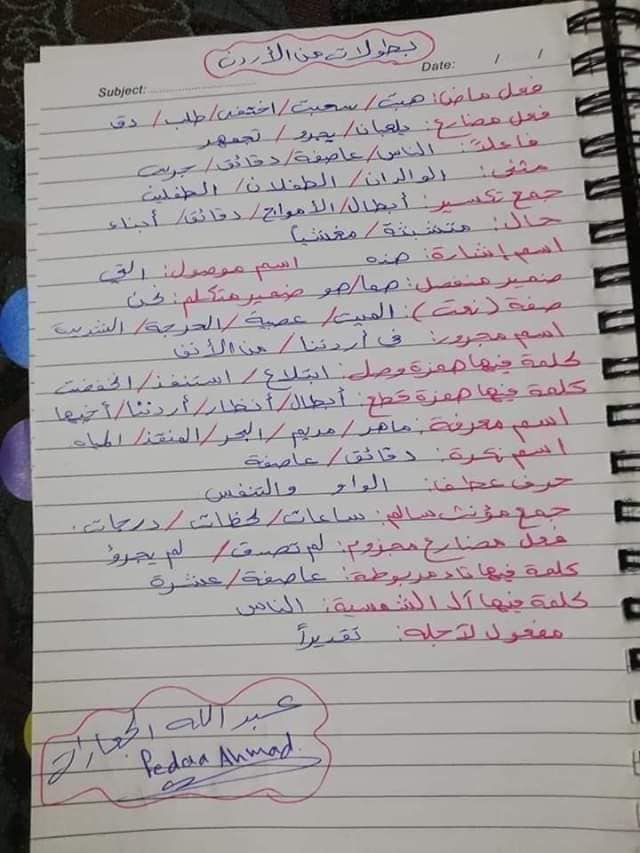 بطولات من الأردن
Subject: Date: / /
فعل ماضٍ: هبت/ سحبت/ اختفى/ طلب/ دق
فعل مضارع: يلعبان/ يجرؤ/ تجمهر
فاعل: الناس/ عاصفة/ دقائق/ جريت
مثنى: الوالدان/ الطفلان/ الطفلين
جمع تكسير: أبطال/ الأمواج/ دقائق/ أبناء
حال: متشبثة/ مغشيا
اسم إشارة: هذه اسم موصول: التي
ضمير منفصل: هما/هو ضمير متكلم: نحن
صفة (نعت): الميت/ عصيبة/ الحرجة/ الشديدة
اسم مجرور: في أردننا/ من الأفق
كلمة فيها همزة وصل: ابتلاع/ استنفذ/ انخفضت
كلمة فيها همزة قطع: أبطال/ أنظار/ أردننا/ أخيها
اسم معرفة: ماهر/ مريم/ البحر/ المنقذ/ المياه
اسم نكرة: دقائق/ عاصفة
حرف عطف: الواو والتنفس
جمع مؤنث سالم: ساعات/ لحظات/ درجات.
فعل مضارع مجزوم: لم تصدق/ لم يجرؤ
كلمة فيها تاء مربوطة: عاصفة/ عشرة
كلمة فيها أل الشمسية: الناس
مفعول لأجله: تقديراً
عبد الله الجعارات
Pedaa Ahmad